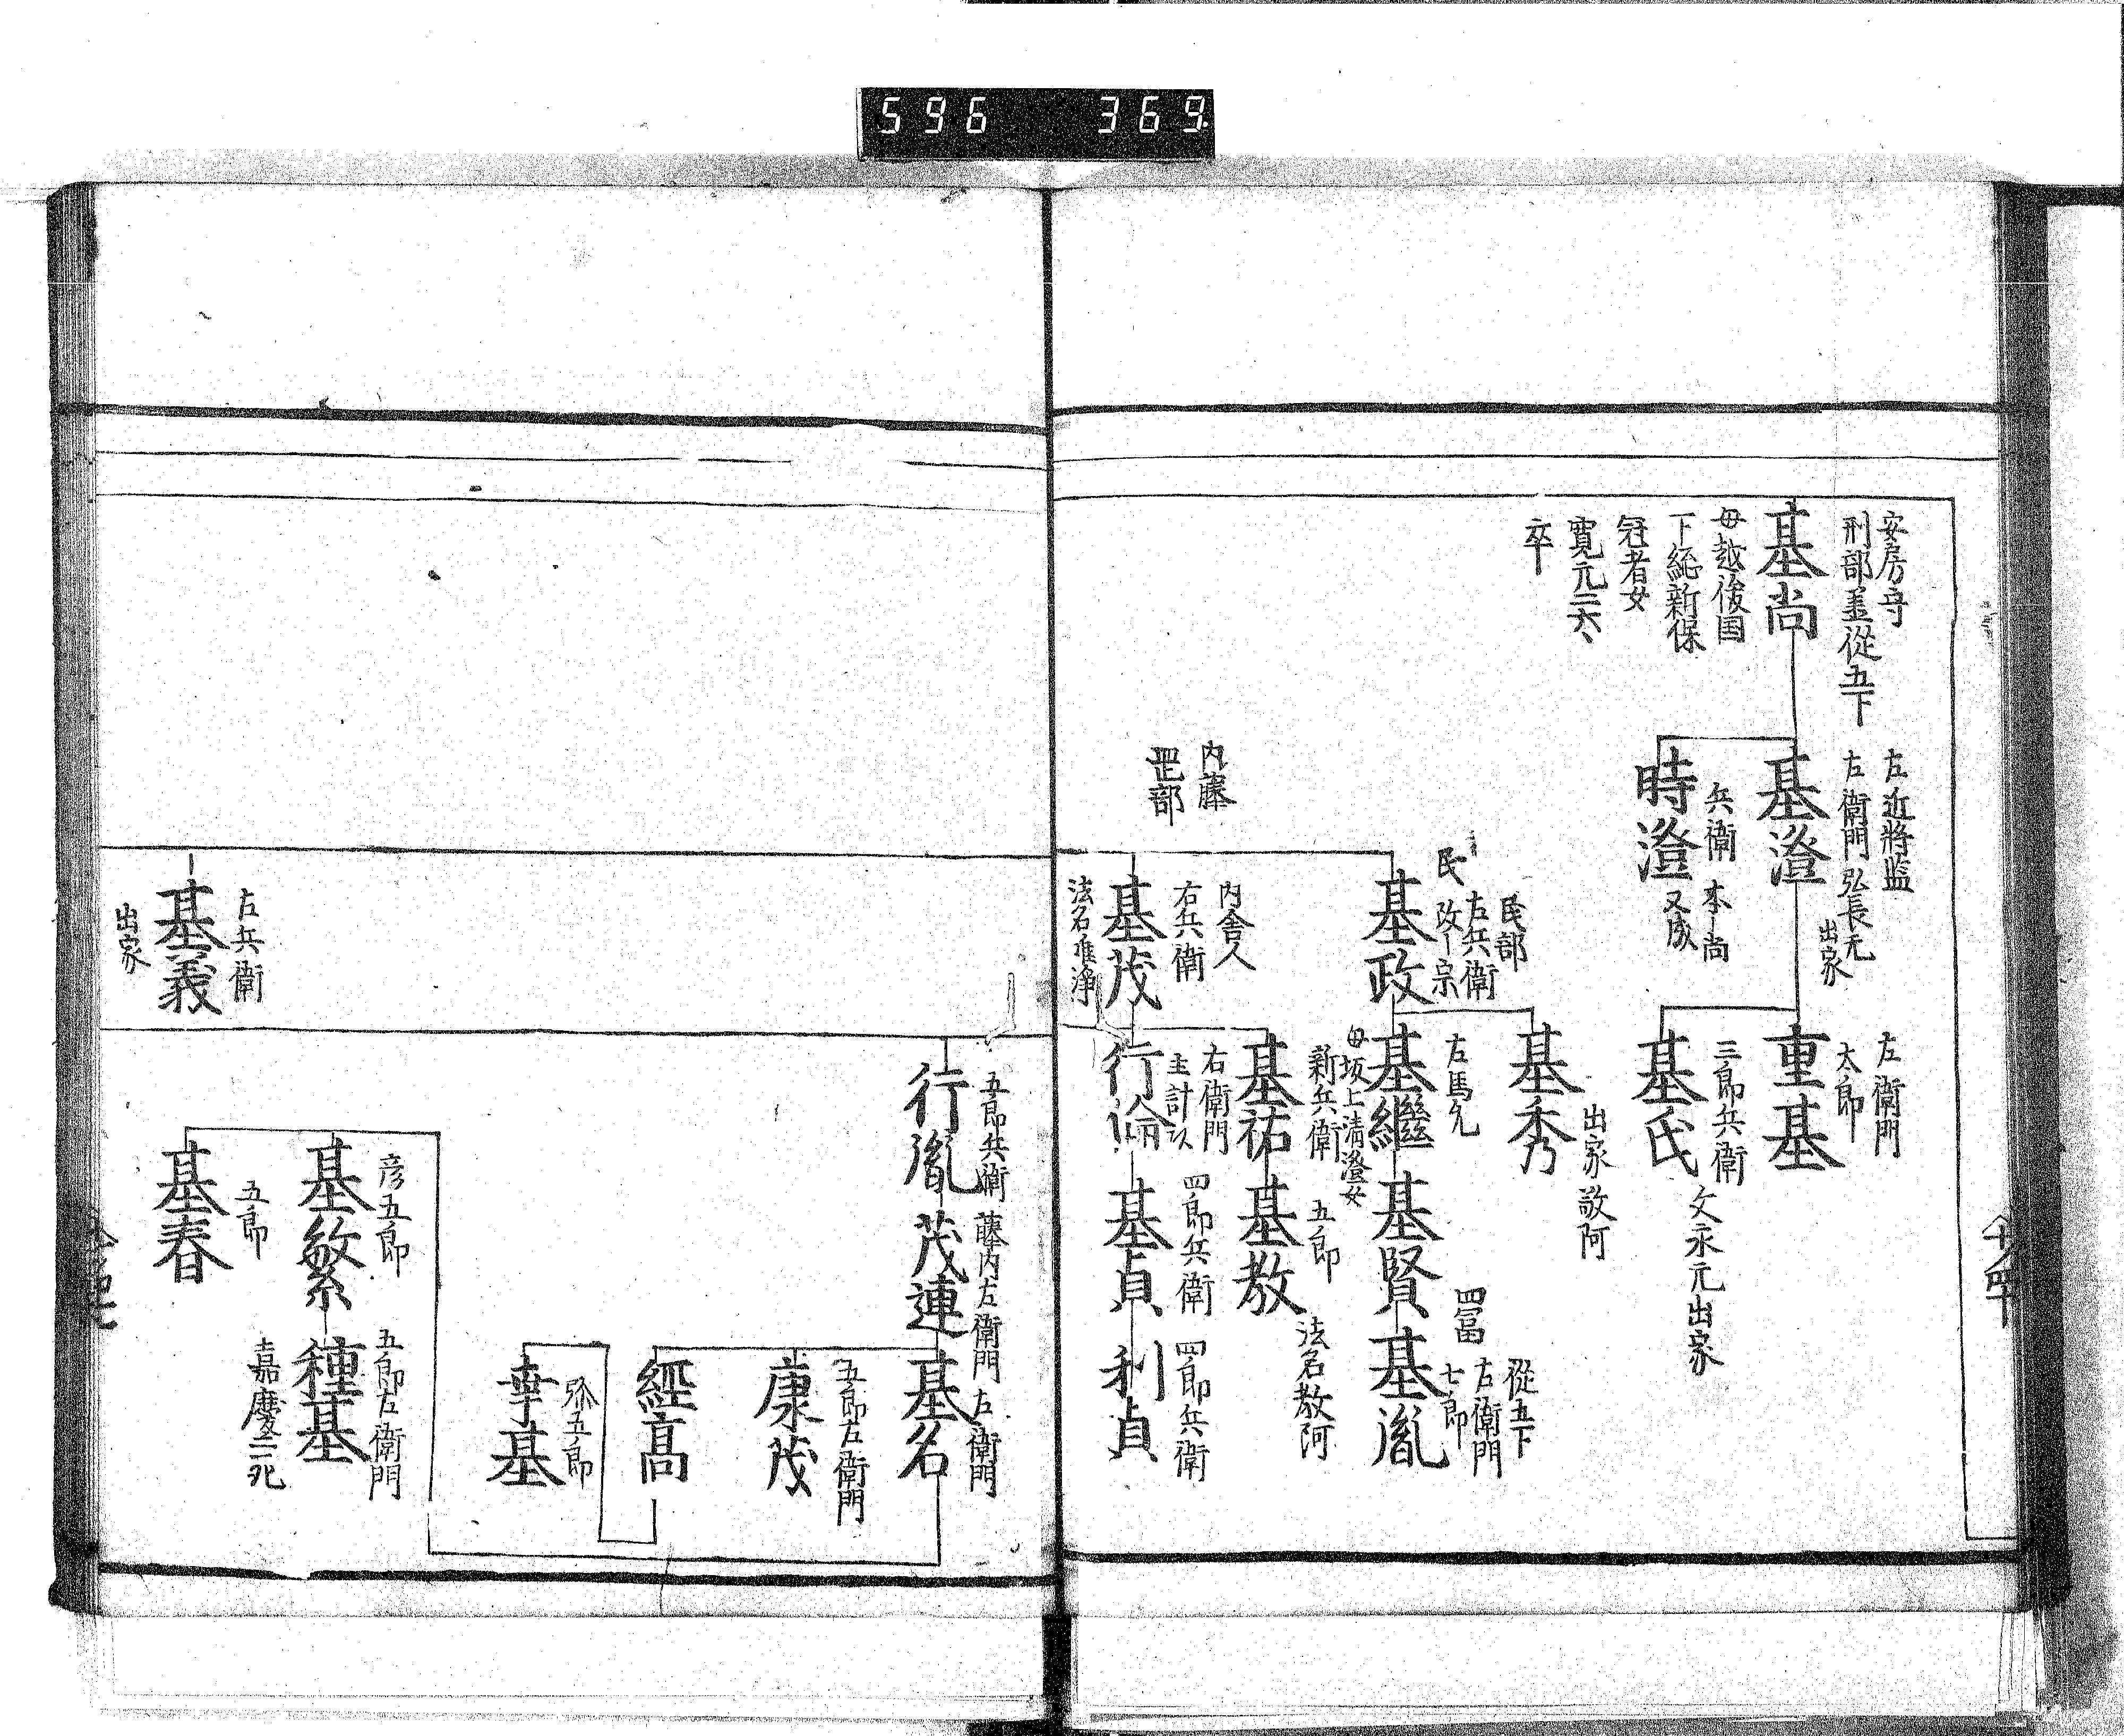 596 369.
安房守
刑部丞従五下
基尚
母越後国
下絁新保
冠者女
寛元二六、
卒
左近將監
左衛門 弘長元
出家
基澄
兵衛 本ー尚
時澄
又成
左衛門
太郎
重基
三郎兵衛
文永元出家
基氏
基秀
出家 敬阿
民部
左兵衛
改ー宗
民
基政
右馬允
基繼
母坂上清澄女
基賢
四冨
從五下
左衛門
七郎
基胤
新兵衛
基祐
五郎
基教
法名教阿
内藤
内舍人
右兵衛
基茂
法名唯淨
右衛門
主計以
行倫
四郎兵衛
基貞
四郎兵衛
利貞
五郎兵衛
行胤
藤内左衛門
茂連
左衛門
基名
五郎左衛門
康茂
經高
弥五郎
幸基
彦五郎
基繁
五郎左衛門
種基
嘉慶二死
五郎
基春
左兵衛
基義
出家